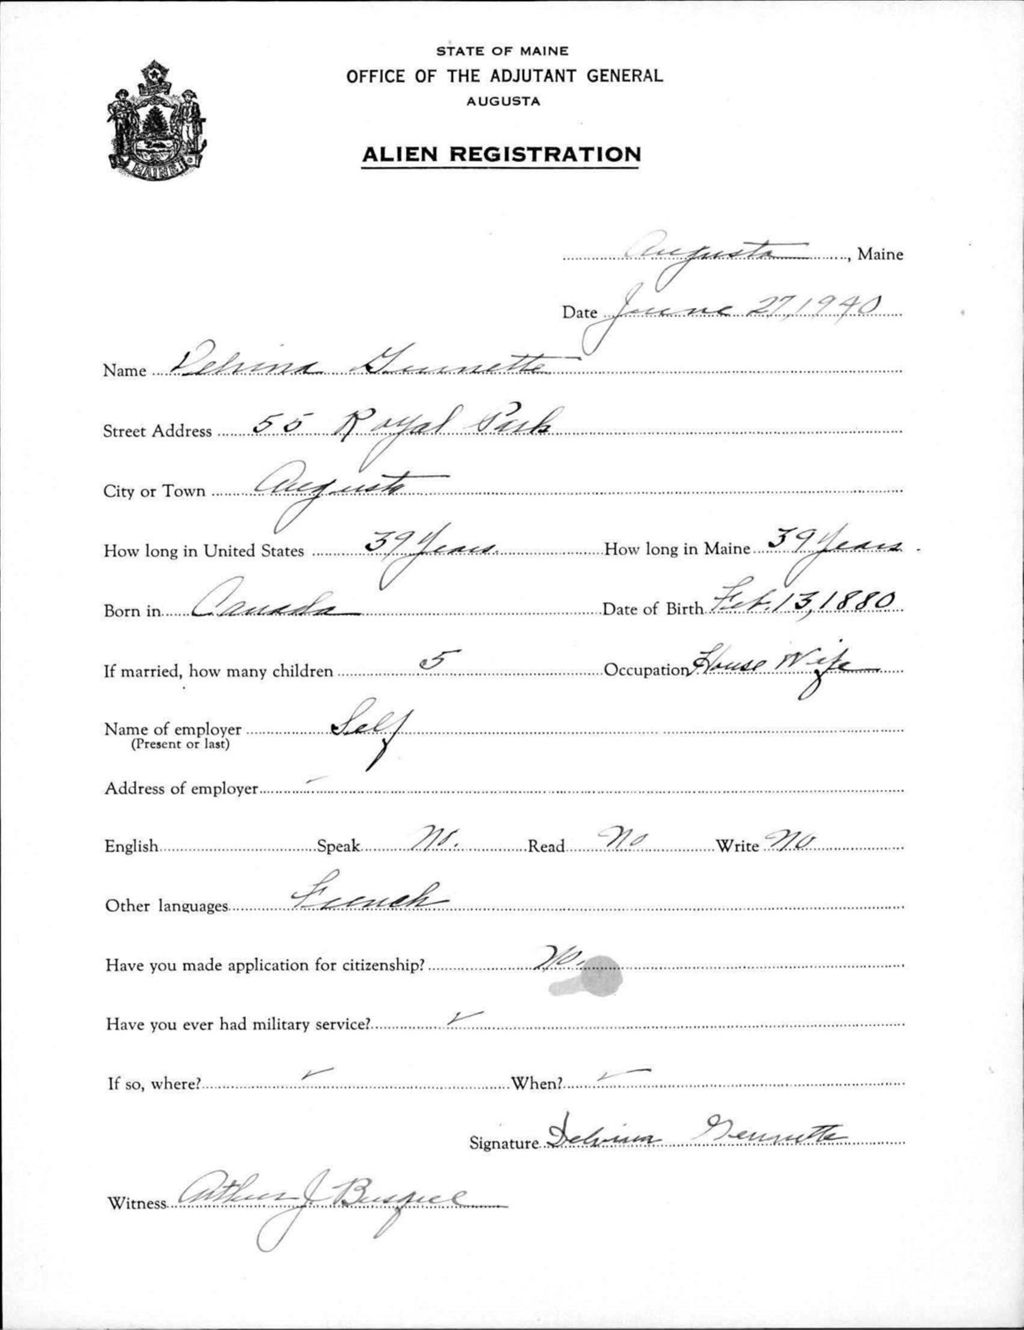 STATE OF MAINE
OFFICE OF THE ADJUTANT GENERAL
AUGUSTA
ALIEN REGISTRATION
MAINE
Augusta, Maine
Date June 27, 1940
Name Delvina
Street Address 55 Royal Park
City or Town Augusta
How long in United States 39 Years. How long in Maine 39 Years.
Born in Canada Date of Birth Feb. 13, 1880
If married, how many children 5 Occupation House Wife
Name of employer Self
(Present or last)
Address of employer
English Speak No. Read No Write No
Other languages French
Have you made application for citizenship? No.
Have you ever had military service?
If so, where? When?
Signature Delvina
Witness Arthur J